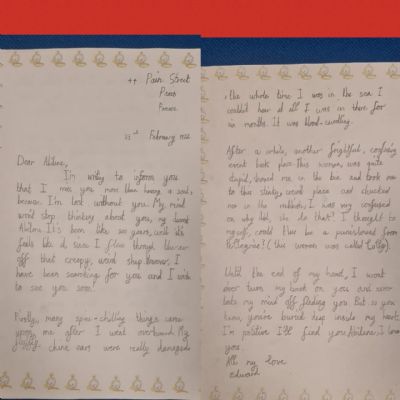 44 Pain Street
Paris
France
22nd February 1932
Dear Abilene,
I'm writing to inform you
that I miss you more than having a soul,
because I'm lost without you. My mind
won't stop thinking about you, my dearest
Abilene. It's been like six years, well it's
feels like it, since I flew through the air
off that creepy, weird ship. However, I
have been searching for you and I wish
to see you soon!
Firstly, many spine-chilling things came
upon me after I went overboard. My
china ears were really damaged
, the whole time I was in the sea. I
couldn't hear at all. I was in there for
six months. It was blood-curdling.
After a while, another frightful, confusing
event took place. This woman, was quite
stupid, shoved me in the bin and took me
to this stinky, weird place and chucked
me in the rubbish; I was very confused
on why did she do that? I thought to
myself, could this be a punishment from
Pellegrina? (this woman was called
Until the end of my heart, I wont
over turn my back on you and never
take my mind off finding you. But so you
know, you're buried deep inside my heart.
I'm positive I'll find you Abilene. I love
you.
All my love
Edward